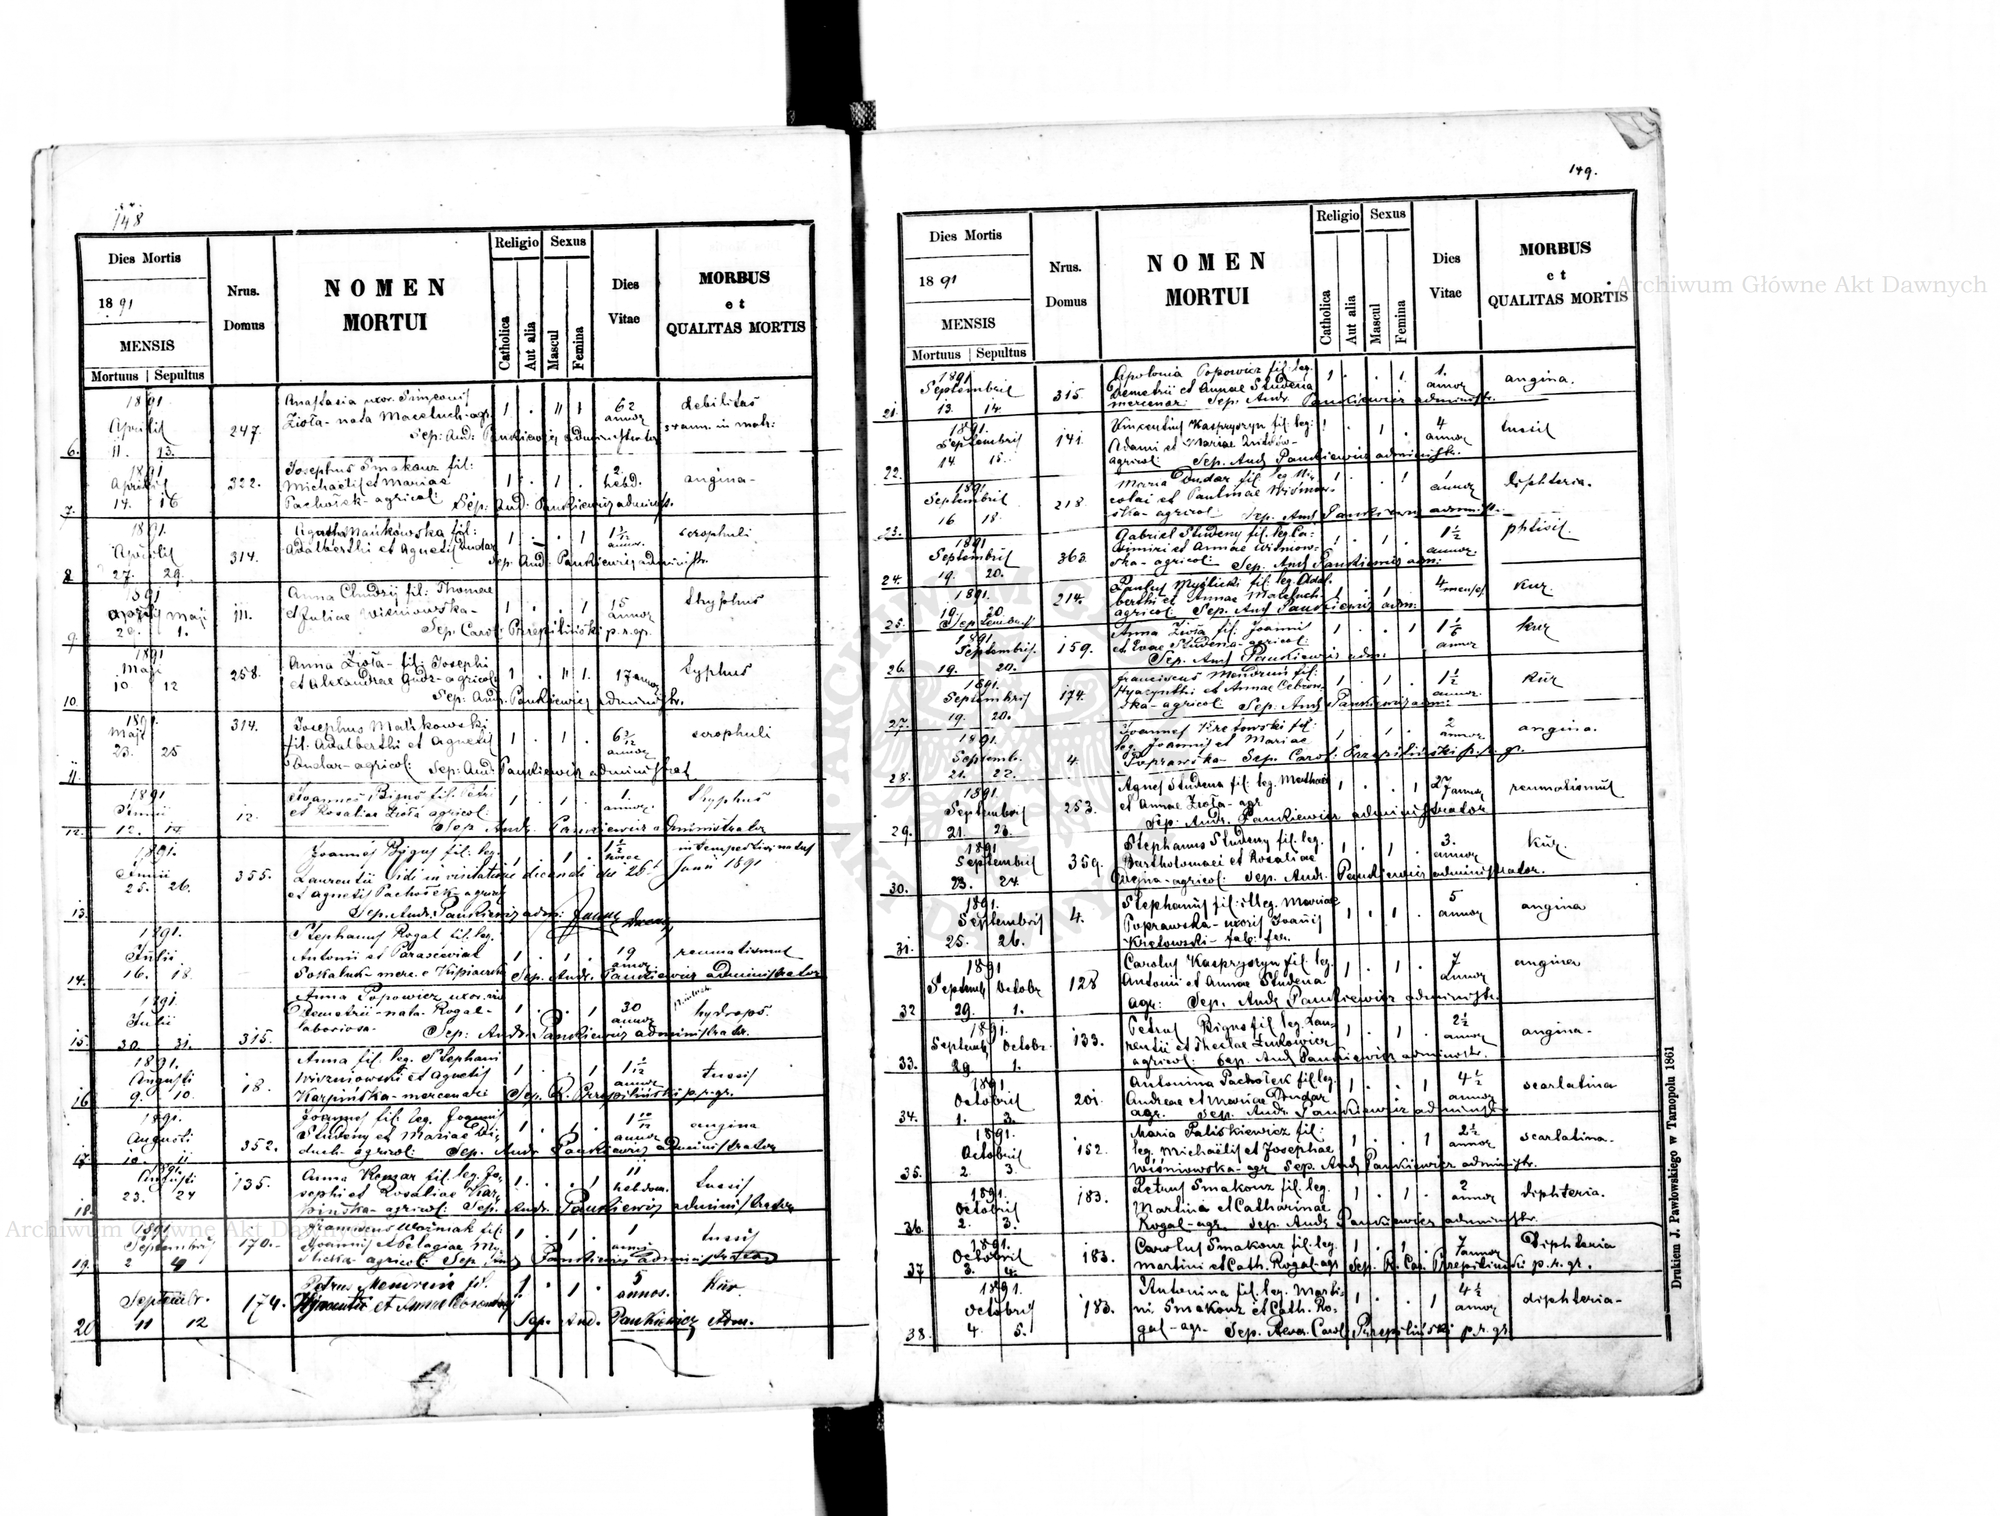 148
Dies Mortis
1891
MENSIS
Mortuus | Sepultus
Nrus.
Domus
NOMEN
MORTUI
Religio
Catholica
Aut alia
Sexus
Mascul
Femina
Dies
Vitae
MORBUS
et
QUALITAS MORTIS
1891
Aprilis
6. 11. 13.
247.
Anastasia uxor. Simeonis
Zioła - nata Maceluch - agr.
Sep: And: Pankiewicz administrator
1 . 1
62
annor
debilitas
1891
Aprilis
7. 14. 16
322.
Josephus Smakouz fil:
Michaelis et Mariae
Pachołek - agricol: Sep: And: Pankiewicz administ.
1 . 1 .
2.
hebd.
angina -
1891.
Aprilis
8 27. 29.
314.
Agatha Mańkowska fil:
Adalberthi et Agnetis Dudar
Sep: And: Pankiewicz administr.
1 . . 1
annor.
scrophuli
1891
Aprilis Maji
9. 29. 1.
111.
Anna Chudzij fil: Thomae
et Juliae Wiśniowska -
Sep: Carol: Przepiliński p. r. gr.
1 . . 1
15
annor
thyphus
1891
Maji
10 10 12
258.
Anna Zioła - fil: Josephi
et Alexandrae Gudz - agricol:
Sep: And: Pankiewicz administr.
1 . 1.
17 annor
typhus
1891.
Maji
11. 23. 25
314.
Josephus Mańkowski
fil. Adalberthi et Agnetis
Dudar - agricol: Sep: And: Pankiewicz administrat
1 . 1 .
annor
scrophuli
1891
Junii
12. 12. 14
12.
Joannes Bigus fil. Petri
et Rosaliae Zioła agricol.
Sep. Andr. Pankiewicz administrator
1 . 1 .
1.
annor.
thyphus
1891.
Junii
13. 25. 26.
355.
Joannes Bigus fil. leg.
Laurentii
et Agnetis Pachołek - agricol
Sep. Andr. Pankiewicz adm:
Vidi in visitatione decanali die 26t Junii 1891
1 . 1 .
1½
horae
intempestive natus
1891.
Julii
14. 16. 18.
Stephanus Rogal fil. leg.
Antonii et Parasceviae
Sokaluk - merc. Sep. Andr. Pankiewicz administrator
1 . 1 .
19
annor
reumatismus
1891.
Julii
15. 30 31.
315.
Anna Popowicz uxor.
Demetrii - nata - Rogal -
laboriosa - Sep: Andr. Pankiewicz administrator.
1 . . 1
30
annor
hydrops.
1891.
Augusti
16 9. 10.
18.
Anna fil. leg. Stephani
Wiszniowski et Agnetis
Karpińska - mercenarii Sep. R. Przepiliński p. r. gr.
1 . . 1
annor
tussis
1891.
Augusti
17. 10. 11
352.
Joannes fil. leg. Joannis
Studeny et Mariae
agricol: Sep. Andr. Pankiewicz administrator
1 . 1 .
annor
angina
1891.
Augusti
18. 23. 24
135.
Anna Komar fil. leg. Jo-
sephi et Rosaliae
agricol: Sep. Andr. Pankiewicz administrator
1 . . 1
11
hebdom.
tussis
1891
Septembris
19. 2 4
170. -
Franciscus Woźniak fil.
Joannis et Pelagiae My-
slicka - agricol: Sep. And. Pankiewicz administrator
1 . 1 .
1
anni
tussis
Septembr.
20 11 12
174.
Petrus Mendruń fil.
Hyacinthi et Annae
Sep. And. Pankiewicz Adm.
1 . 1 .
5
annos.
Kur
149.
Dies Mortis
1891
MENSIS
Mortuus | Sepultus
Nrus.
Domus
NOMEN
MORTUI
Religio
Catholica
Aut alia
Sexus
Mascul
Femina
Dies
Vitae
MORBUS
et
QUALITAS MORTIS
1891
Septembris
21. 13. 14.
315.
Apolonia Popowicz fil. leg.
Demetrii et Annae Studena
mercenar: Sep. Andr. Pankiewicz administr.
1 . . 1.
1.
annor
angina.
1891.
Septembris
22. 14. 15.
141.
Vincentius Kaspryszyn fil. leg:
Adami et Mariae
agricol: Sep. And. Pankiewicz administr.
1 . 1 .
4
annor
tussis
1891
Septembris
23. 16 18.
218.
Maria Dudar fil. leg. Ni-
colai et Paulinae Wiśniow-
ska - agricol: Sep. And. Pankiewicz administr.
1 . . 1
1
annor
diphteria.
1891
Septembris
24. 19. 20.
363
Gabriel Studeny fil. leg. Ca-
simiri et Annae Wiśniow-
ska - agricol: Sep. And. Pankiewicz adm:
1 . 1 .
1½
annor
phtisis.
1891.
19. 20
25. Septembris
214.
Paulus Myślicki fil. leg. Adal-
berthi et Annae
agricol: Sep. And. Pankiewicz adm:
1 . 1
4
menses
Kur.
1891
Septembris.
26. 19. 20.
159.
Anna Zioła fil. Joannis
et Evae Studena - agricol:
Sep. And. Pankiewicz adm:
1 . . 1
annor
kur
1891.
Septembris
27. 19. 20.
174.
Franciscus Mendruń fil.
Hyacynthi et Annae Cebrow-
ska - agricol: Sep. And. Pankiewicz adm:
1 . 1 .
1½
annor.
kur
1891.
Septemb.
28. 21. 22.
4.
Joannes Krętowski fil.
leg. Joannis et Mariae
Poprawska - Sep. Carol: Przepiliński p. r. gr.
1 . 1 .
2
annor
angina.
1891.
Septembris
29. 21. 23.
253.
Agnes Studena fil. leg. Mathaei
et Annae Zioła - agr
Sep. Andr. Pankiewicz administrator
1 . . 1
27
annor
reumatismus
1891
Septembris
30. 23. 24.
359.
Stephanus Studeny fil. leg.
Bartholomaei et Rosaliae
agricol: Sep. Andr. Pankiewicz administrator.
1 . 1 .
3.
annor
kur.
1891.
Septembris
31. 25. 26.
4.
Stephanus fil: illeg. Mariae
Poprawska - uxoris Joannis
Krętowski - fab: fer.
1 . 1 .
5
annor
angina
1891
Septemb Octobr
32 29. 1.
128
Carolus Kaspryszyn fil. leg.
Antonii et Annae Studena
agr: Sep. And. Pankiewicz administr.
1 . 1 .
7
annor
angina
1891.
Septemb Octobr.
33. 29. 1.
133.
Petrus Bigus fil. leg. Lau-
rentii et Theclae Zinkowicz
agricol: Sep. And. Pankiewicz administr.
1 . 1 .
2½
annor
angina -
1891
Octobris
34. 1. 3.
201.
Antonina Pachołek fil. leg.
Andreae et Mariae Dudar
agr. Sep. Andr. Pankiewicz administr.
1 . . 1
4½
annor
scarlatina
1891.
Octobris
35. 2. 3.
152.
Maria Paliskiewicz fil:
leg. Michaelis et Josephae
Wiśniowska - agr. Sep. And. Pankiewicz administr.
1 . . 1
2½
annor
scarlatina -
1891.
Octobris
36. 2. 3.
183.
Petrus Smakouz fil. leg.
Martini et Catharinae
Rogal - agr. Sep. And. Pankiewicz administr.
1 . 1 .
2
annor
diphteria.
1891.
Octobris
37 3. 4.
183.
Carolus Smakouz fil. leg.
Martini et Cath. Rogal - agr Sep. R. Car. Przepiliński p. r. gr.
1 . 1 .
7
annor
Diphteria
1891.
Octobris
38. 4. 5.
183.
Antonina fil. leg. Marti-
ni Smakouz et Cath. Ro-
gal - agr. Sep. Rever. Carol. Przepiliński p. r. gr.
1 . . 1
4½
annor
diphteria -
Drukiem J. Pawłowskiego w Tarnopolu 1861
Archiwum Główne Akt Dawnych
Archiwum Główne Akt Dawnych
ARCHIWUM
AKT DAWNYCH